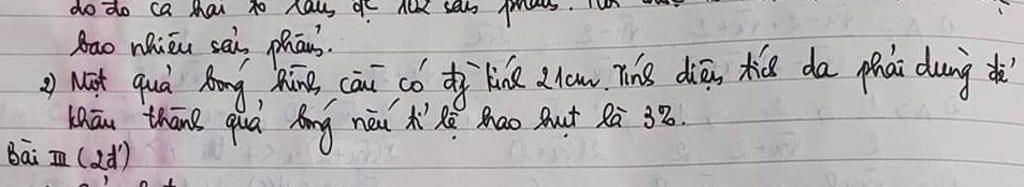 do đó cả hai tổ
bao nhiêu sản phẩm.
2) Một quả bóng hình cầu có đg kính 21cm. Tính diện tích da phải dùng để
khâu thành quả bóng nếu tỉ lệ hao hụt là 3%.
Bài III (2đ)